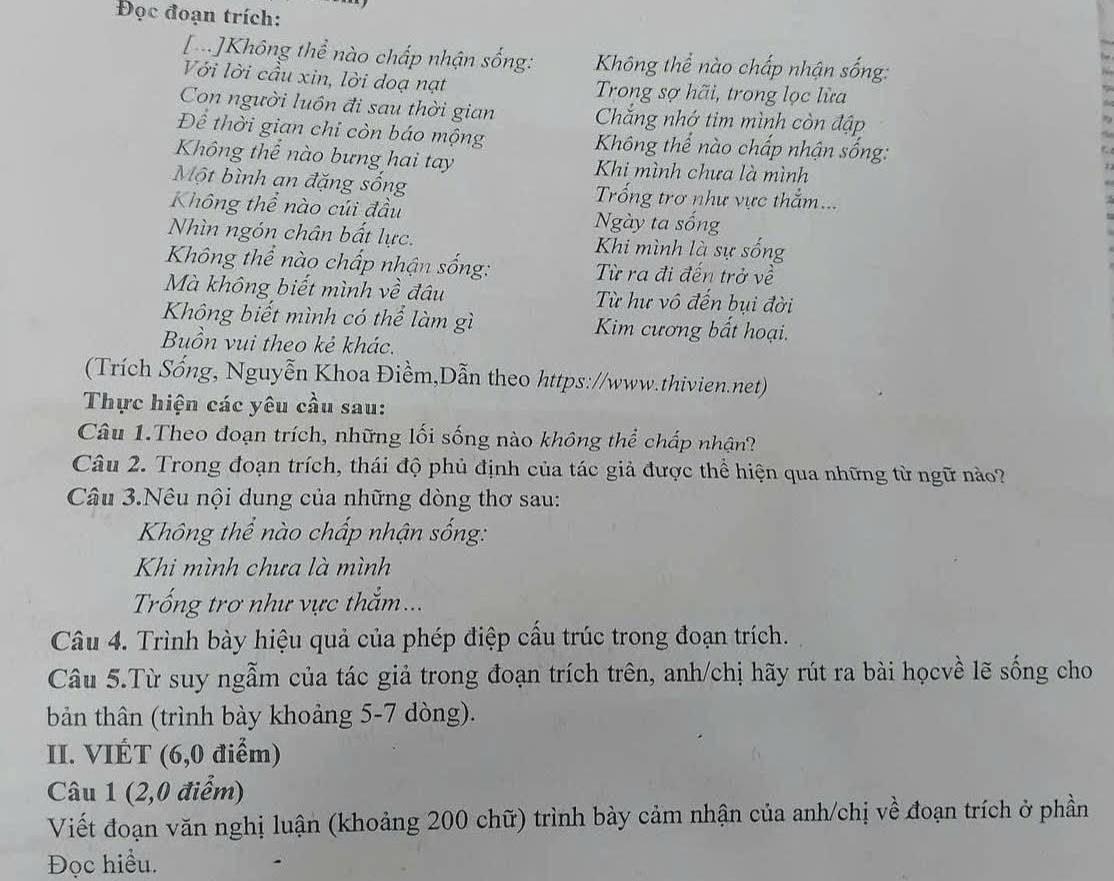 Đọc đoạn trích:
[...]Không thể nào chấp nhận sống:
Với lời cầu xin, lời doạ nạt
Con người luôn đi sau thời gian
Để thời gian chỉ còn báo mộng
Không thể nào bưng hai tay
Một bình an đặng sống
Không thể nào cúi đầu
Nhìn ngón chân bất lực.
Không thể nào chấp nhận sống:
Mà không biết mình về đâu
Không biết mình có thể làm gì
Buồn vui theo kẻ khác.
Không thể nào chấp nhận sống:
Trong sợ hãi, trong lọc lừa
Chẳng nhớ tim mình còn đập
Không thể nào chấp nhận sống:
Khi mình chưa là mình
Trống trơ như vực thẳm...
Ngày ta sống
Khi mình là sự sống
Từ ra đi đến trở về
Từ hư vô đến bụi đời
Kim cương bất hoại.
(Trích Sống, Nguyễn Khoa Điềm,Dẫn theo https://www.thivien.net)
Thực hiện các yêu cầu sau:
Câu 1.Theo đoạn trích, những lối sống nào không thể chấp nhận?
Câu 2. Trong đoạn trích, thái độ phủ định của tác giả được thể hiện qua những từ ngữ nào?
Câu 3.Nêu nội dung của những dòng thơ sau:
Không thể nào chấp nhận sống:
Khi mình chưa là mình
Trống trơ như vực thẳm...
Câu 4. Trình bày hiệu quả của phép điệp cấu trúc trong đoạn trích.
Câu 5.Từ suy ngẫm của tác giả trong đoạn trích trên, anh/chị hãy rút ra bài họcvề lẽ sống cho
bản thân (trình bày khoảng 5-7 dòng).
II. VIẾT (6,0 điểm)
Câu 1 (2,0 điểm)
Viết đoạn văn nghị luận (khoảng 200 chữ) trình bày cảm nhận của anh/chị về đoạn trích ở phần
Đọc hiểu.